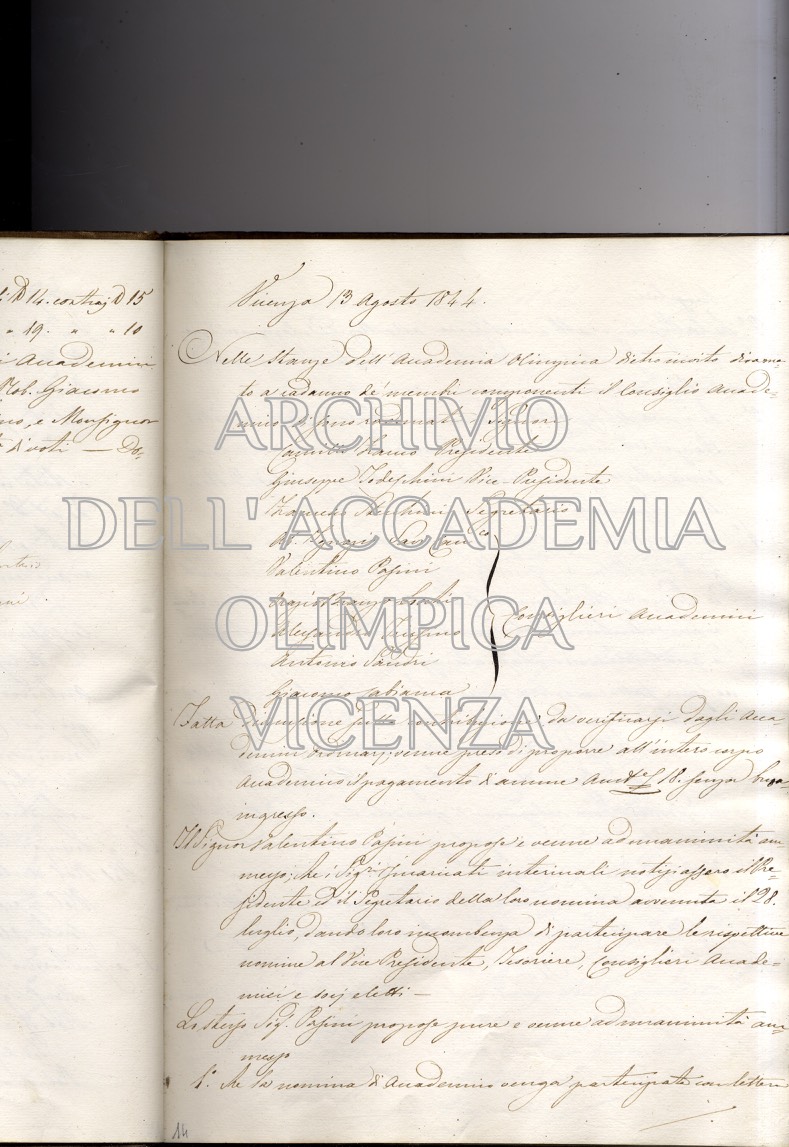 : D 14. contrarj D 15
" 19. " " 10
Accademici
Nob. Giacomo
no, e Monsignor
di voti — Do-
Vicenza 13 Agosto 1844.
Nelle stanze dell'Accademia Olimpica dietro invito dirama-
to a cadauno de' membri componenti il Consiglio Accade-
mico si sono radunati i Signori
Presidente
Giuseppe Tedeschini Vice-Presidente
Segretario
Valentino Pasini
Consiglieri Accademici
Alessandro
Antonio Sandri
Giacomo Cabianca
Fatta discussione sulla contribuzione da verificarsi dagli Acca
demici ordinarj, venne preso di proporre all'intero corpo
Accademico il pagamento di annue Aust. 18. senza
ingresso.
Il Signor Valentino Pasini propose e venne ad unanimità am-
messo, che i Sig.ri incaricati interinali notiziassero il Pre-
sidente ed il Segretario della loro nomina avvenuta il 28.
luglio, dando loro incombenza di partecipare le rispettive
nomine al Vice Presidente, Tesoriere, Consiglieri Accade-
mici e socj eletti —
Lo stesso Sig.r Pasini propose pure e venne ad unanimità am-
messo
1.° Che la nomina di Accademico venga partecipata con lettera
14
ARCHIVIO
DELL' ACCADEMIA
OLIMPICA
VICENZA